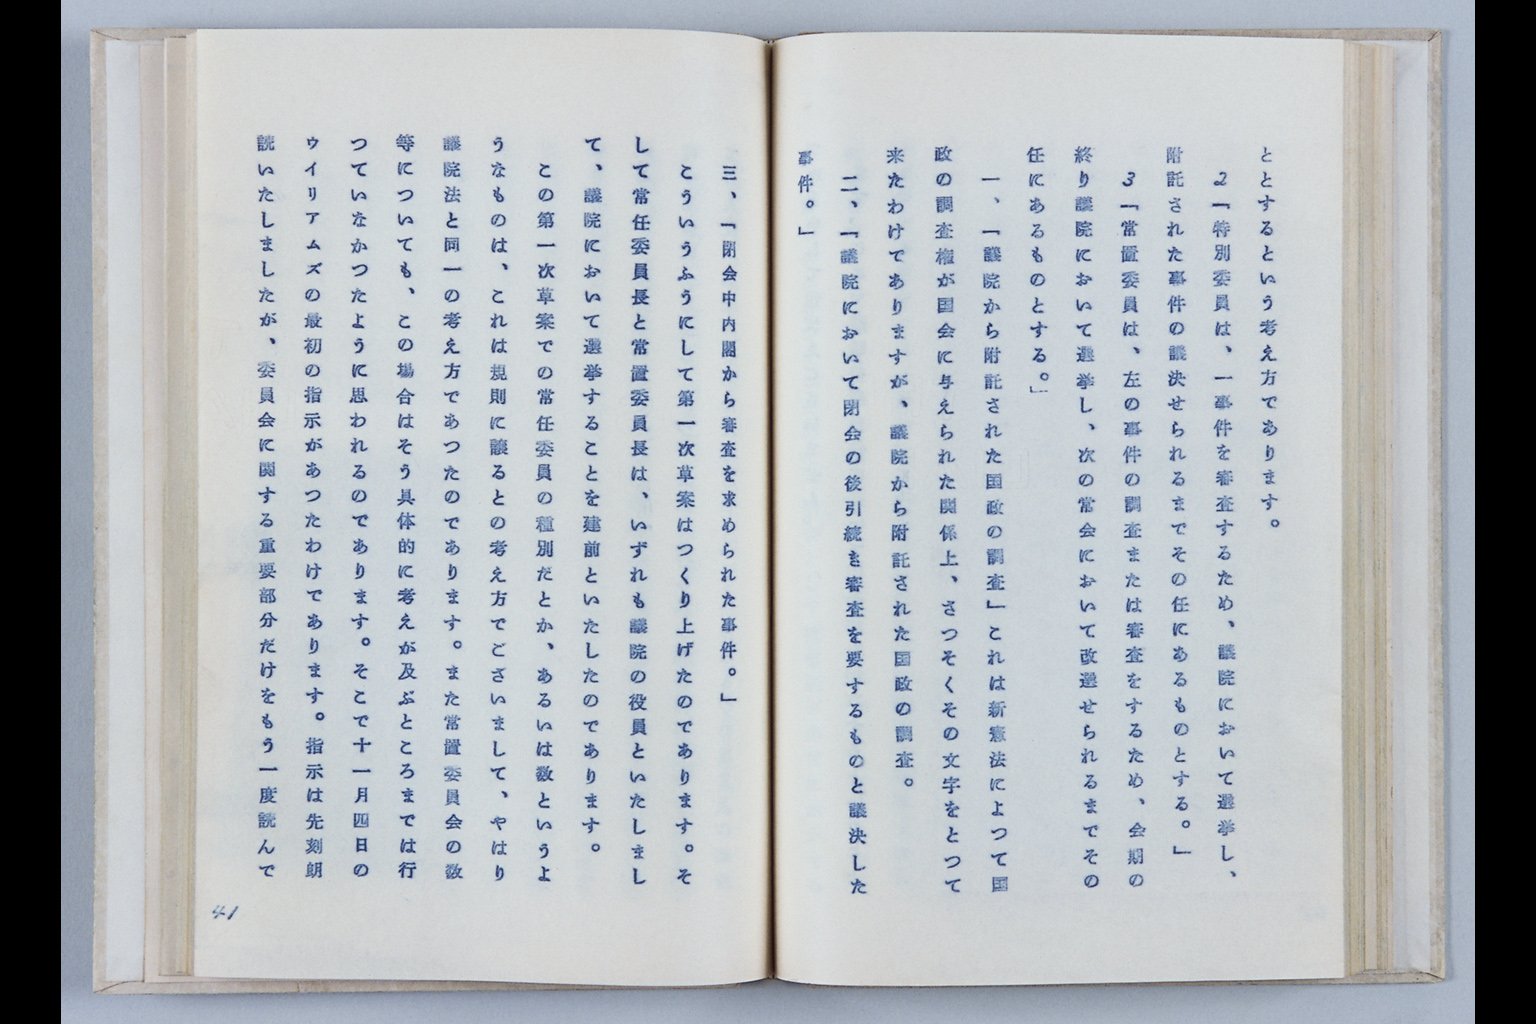 ととするという考え方であります。
2「特別委員は、一事件を審査するため、議院において選挙し、
附託された事件の議決せられるまでその任にあるものとする。」
3「常置委員は、左の事件の調査または審査をするため、会期の
終り議院において選挙し、次の常会において改選せられるまでその
任にあるものとする。」
一、「議院から附託された国政の調査」これは新憲法によつて国
政の調査権が国会に与えられた関係上、さつそくその文字をとつて
来たわけでありますが、議院から附託された国政の調査。
二、「議院において閉会の後引続き審査を要するものと議決した
事件。」
三、「閉会中内閣から審査を求められた事件。」
こういうふうにして第一次草案はつくり上げたのであります。そ
して常任委員長と常置委員長は、いずれも議院の役員といたしまし
て、議院において選挙することを建前といたしたのであります。
この第一次草案での常任委員の種別だとか、あるいは数というよ
うなものは、これは規則に譲るとの考え方でございまして、やはり
議院法と同一の考え方であつたのであります。また常置委員会の数
等についても、この場合はそう具体的に考えが及ぶところまでは行
つていなかつたように思われるのであります。そこで十一月四日の
ウイリアムズの最初の指示があつたわけであります。指示は先刻朗
読いたしましたが、委員会に関する重要部分だけをもう一度読んで
41